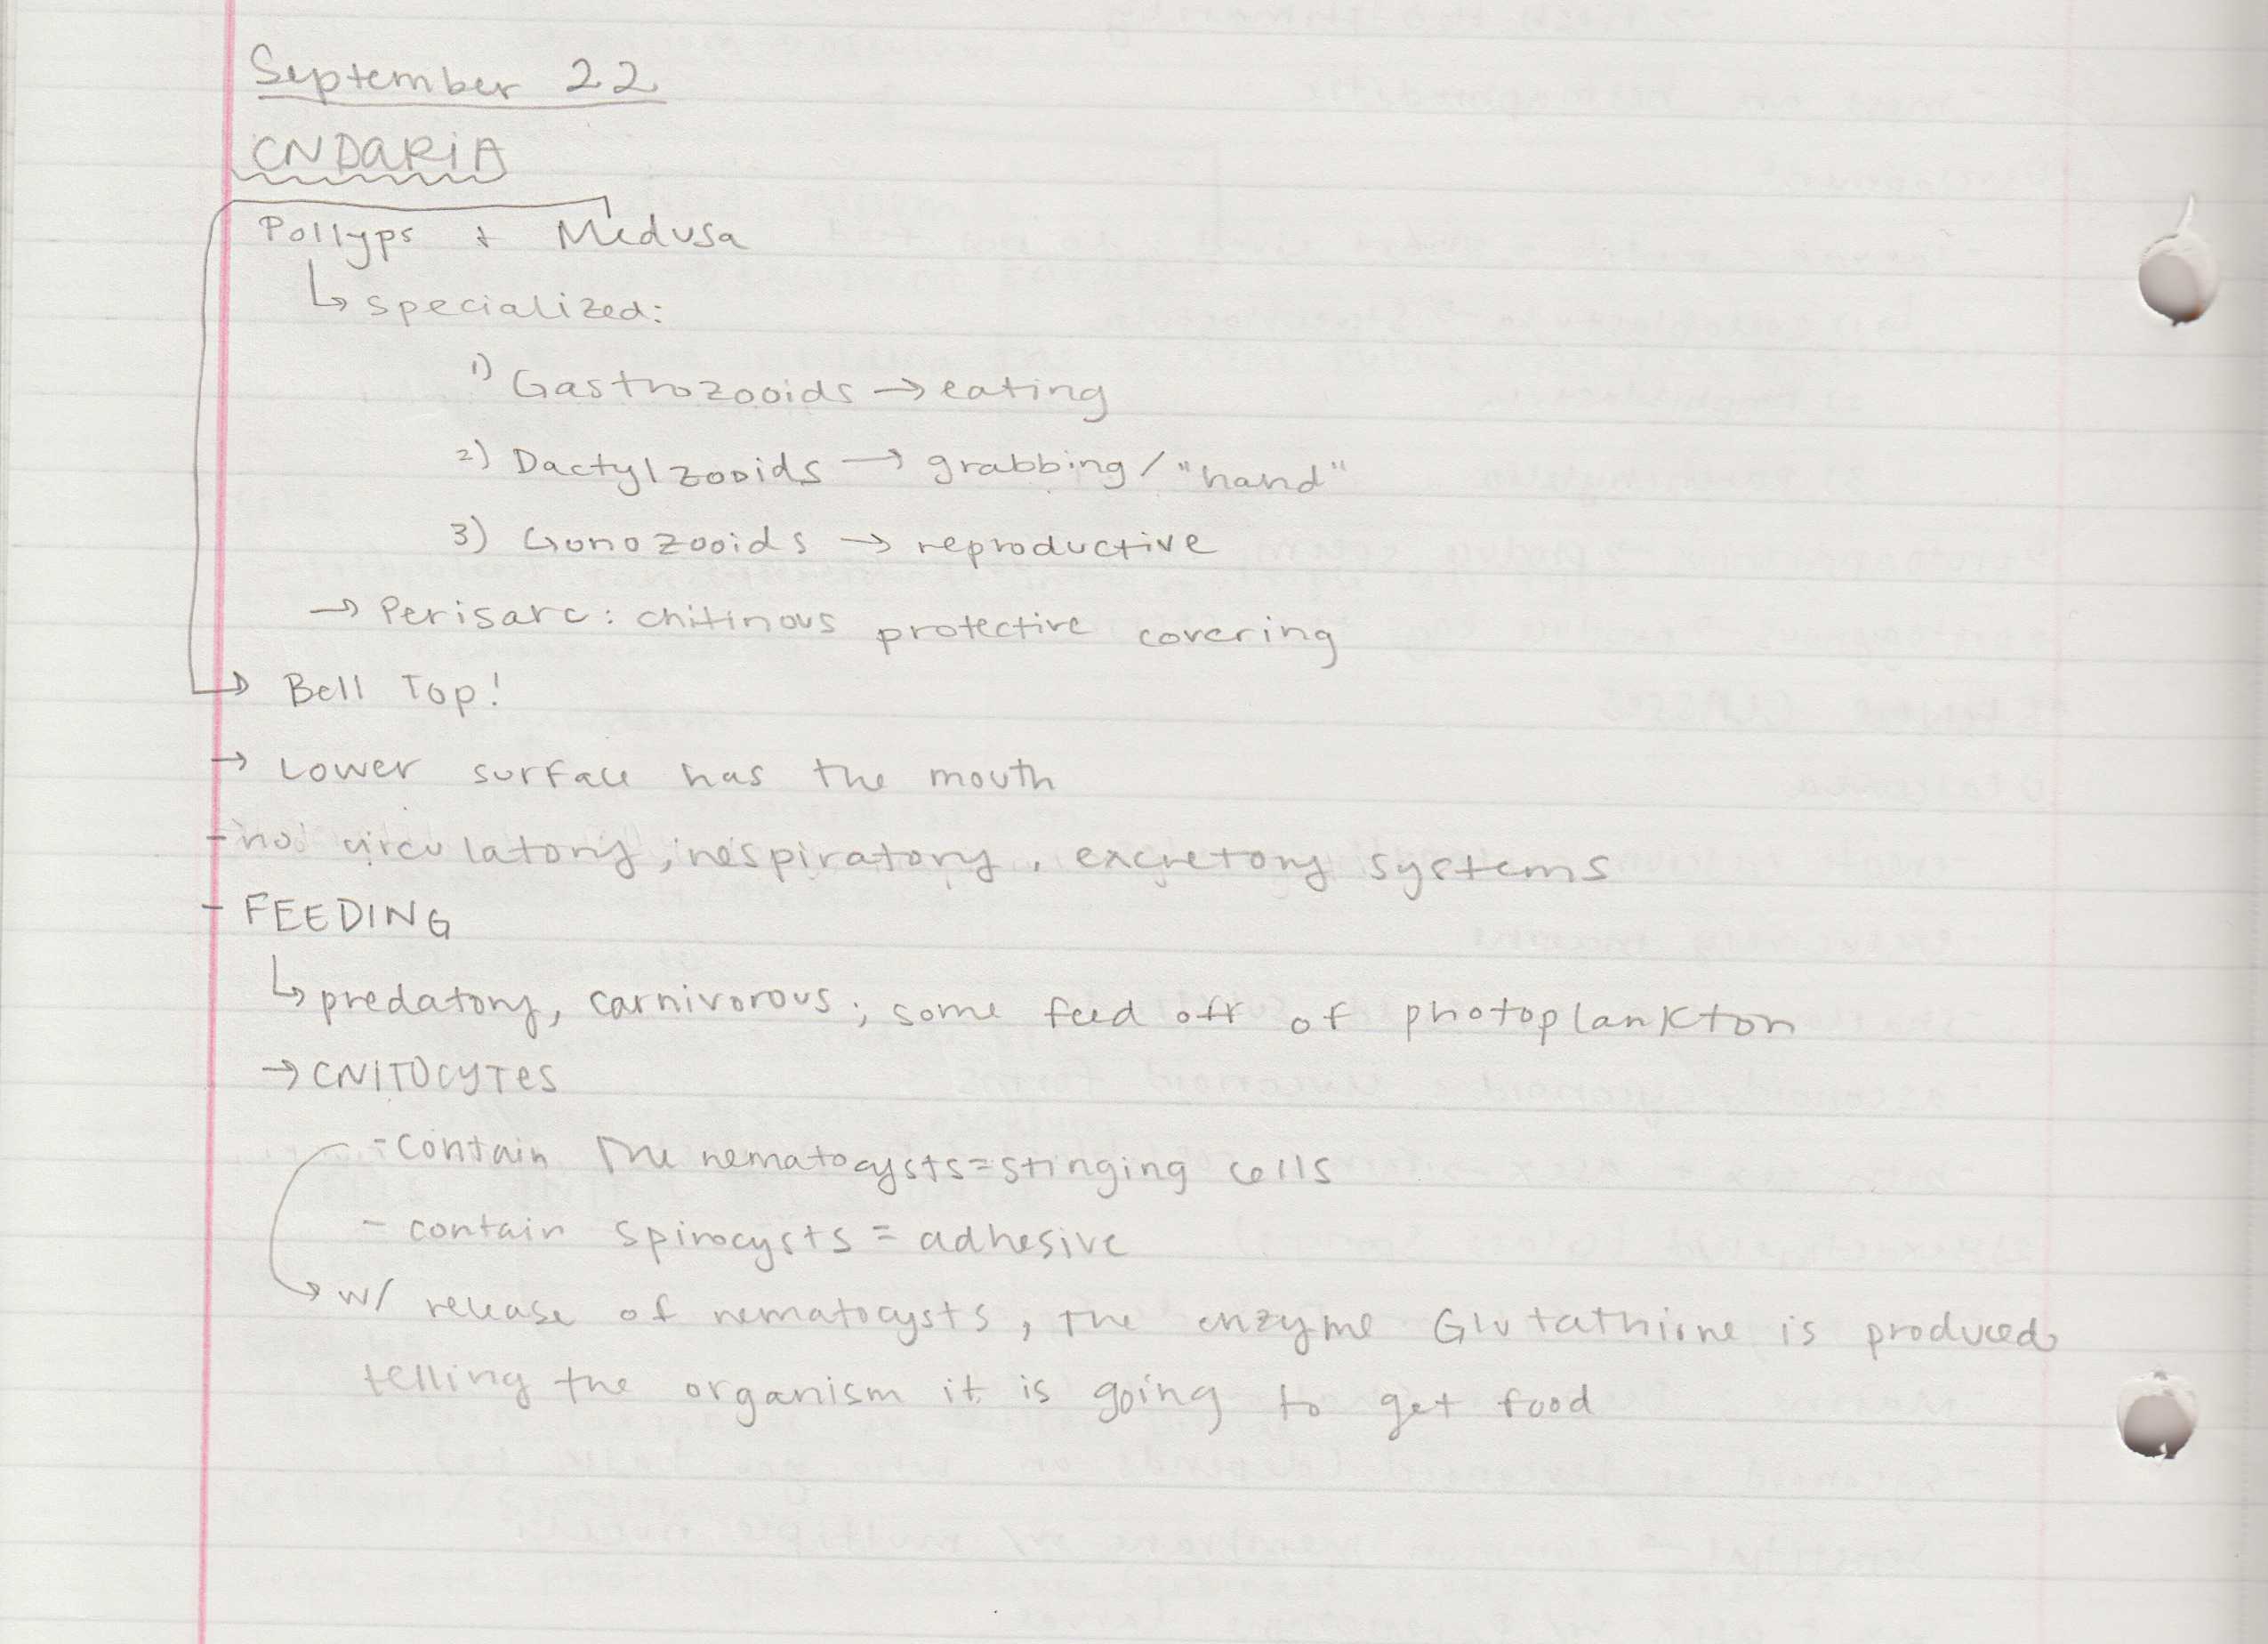 September 22
CNDARIA
Pollyps + Medusa
↳ specialized:
1) Gastrozooids → eating
2) Dactylzooids → grabbing / "hand"
3) Gonozooids → reproductive
→ Perisarc: chitinous protective covering
→ Bell Top!
→ Lower surface has the mouth
- no circulatory, respiratory, excretory systems
- FEEDING
↳ predatory, carnivorous; some feed off of photoplankton
→ CNITOCYTES
- contain the nematocysts = stinging cells
- contain spirocysts = adhesive
→ w/ release of nematocysts, the enzyme Glutathione is produced
telling the organism it is going to get food